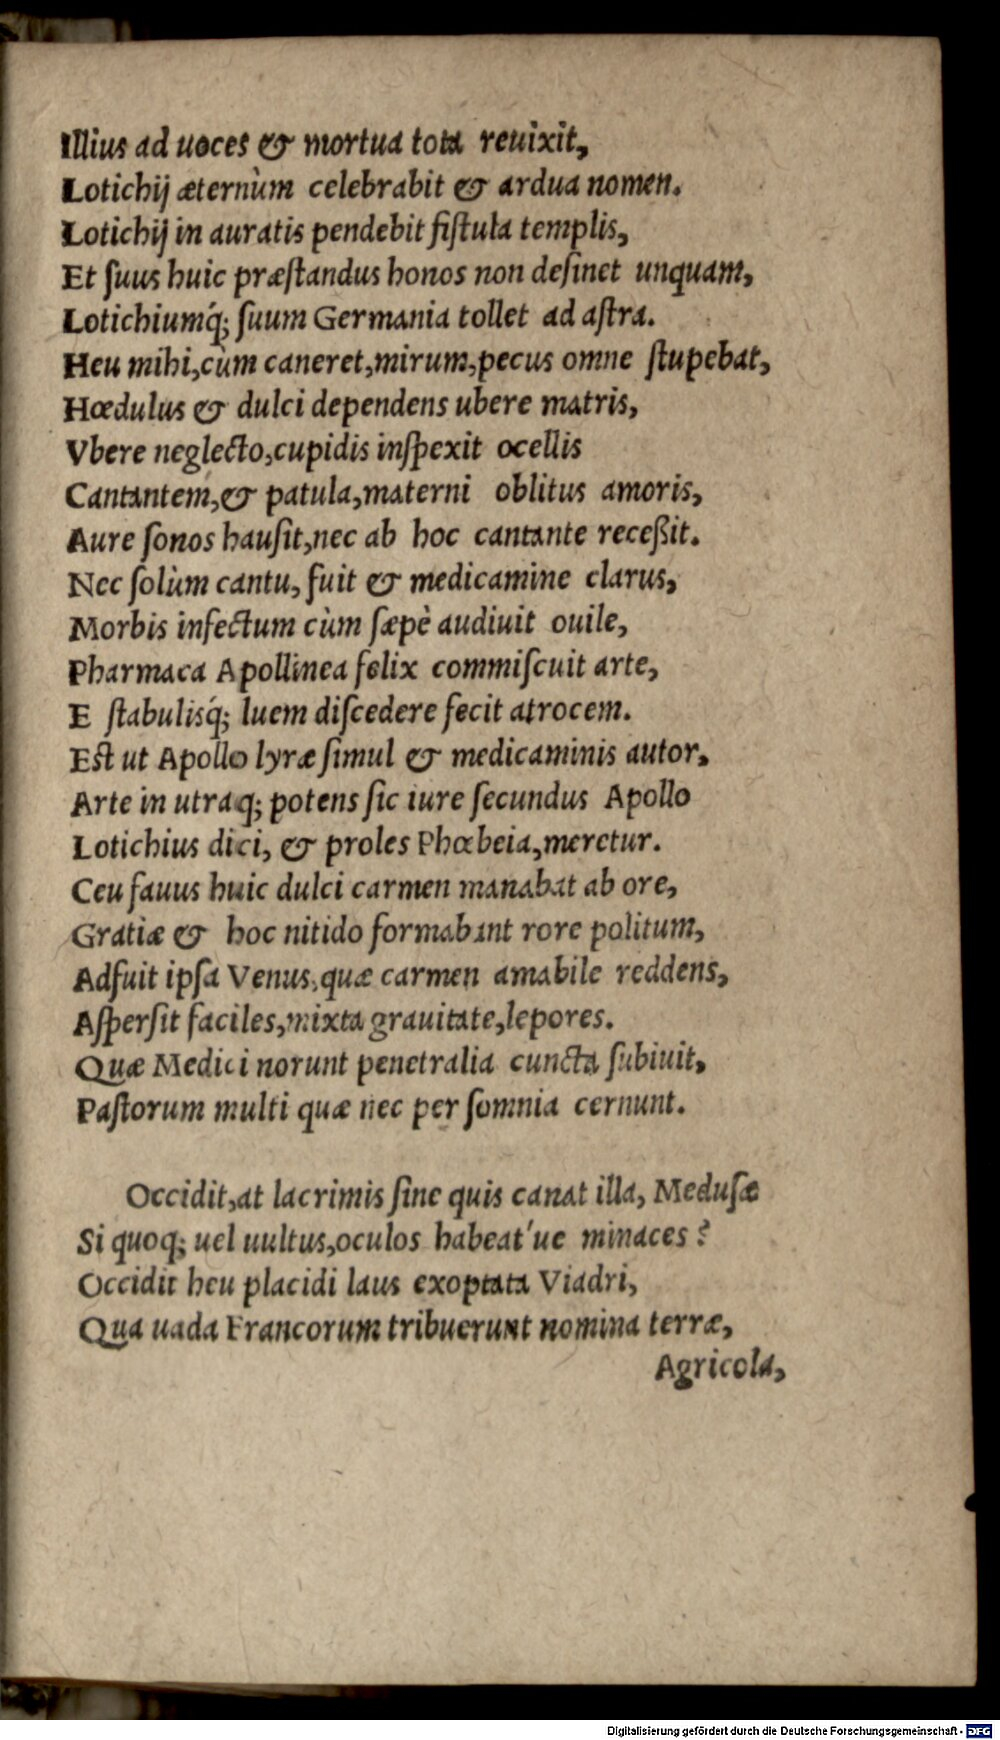 Illius ad uoces & mortua tota reuixit,
Lotichij æternùm celebrabit & ardua nomen.
Lotichij in auratis pendebit fiſtula templis,
Et ſuus huic præſtandus honos non deſinet unquam,
Lotichiumq́; ſuum Germania tollet ad aſtra.
Heu mihi,cùm caneret,mirum,pecus omne ſtupebat,
Hœdulus & dulci dependens ubere matris,
Vbere neglecto,cupidis inſpexit ocellis
Cantantem,& patula,materni oblitus amoris,
Aure ſonos hauſit,nec ab hoc cantante receßit.
Nec ſolùm cantu, fuit & medicamine clarus,
Morbis infectum cùm ſæpè audiuit ouile,
Pharmaca Apollinea felix commiſcuit arte,
E ſtabulisq́; luem diſcedere fecit atrocem.
Eſt ut Apollo lyræ ſimul & medicaminis autor,
Arte in utraq; potens ſic iure ſecundus Apollo
Lotichius dici, & proles Phœbeia,meretur.
Ceu fauus huic dulci carmen manabat ab ore,
Gratiæ & hoc nitido formabant rore politum,
Adfuit ipſa Venus,quæ carmen amabile reddens,
Aſperſit faciles,mixta grauitate,lepores.
Quæ Medici norunt penetralia cuncta ſubiuit,
Paſtorum multi quæ nec per ſomnia cernunt.
Occidit,at lacrimis ſine quis canat illa, Meduſæ
Si quoq; uel uultus,oculos habeat'ue minaces?
Occidit heu placidi laus exoptata Viadri,
Qua uada Francorum tribuerunt nomina terræ,
Agricola,
Digitalisierung gefördert durch die Deutsche Forschungsgemeinschaft - DFG